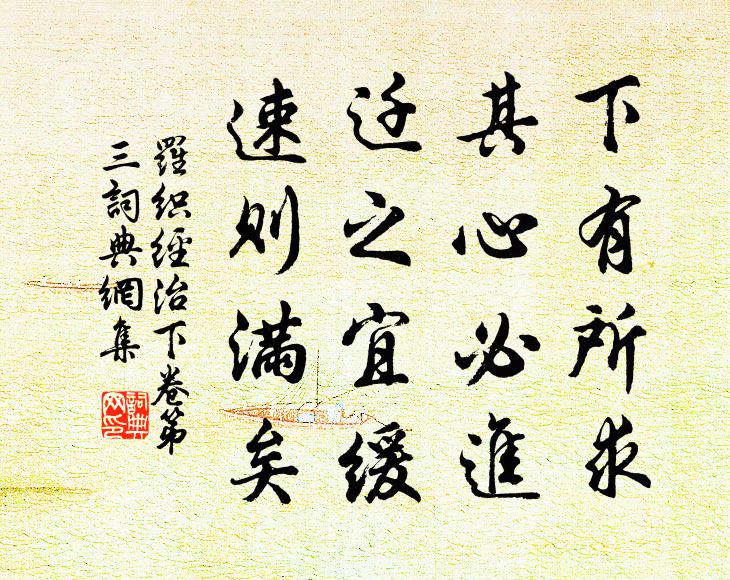 下有所求
其心必進
迁之宜緩
速則滿矣
羅织經治下卷第
三詞典網集
詞典
网印